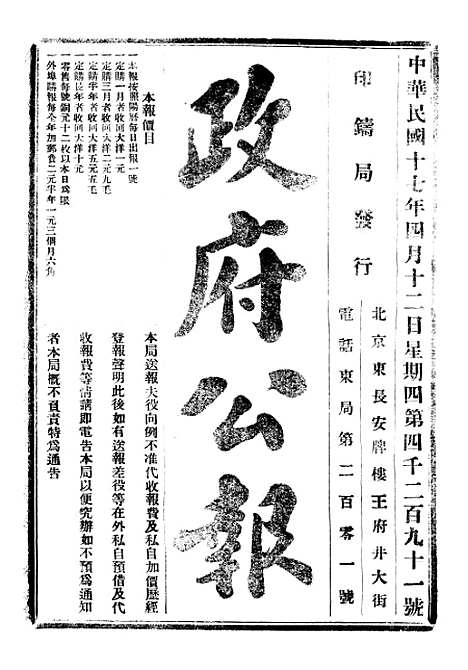 中華民國十七年四月十二日星期四第四千二百九十一號
印鑄局發行
北京東長安牌樓王府井大街
電話東局第二百零一號
政府公報
本局送報夫役向例不准代收報費及私自加價歷經
登報聲明此後如有送報差役等在外私自預借及代
收報費等情請即電告本局以便究辦如不預爲通知
者本局概不負責特爲通告
本報價目
一本報按照陽曆每日出報一號
一定購一月者收回大洋一元
一定購三月者收回大洋二元九毛
一定購半年者收回大洋五元五毛
一定購長年者收回大洋十元
一零售每號銅元十二枚以本日爲限
一外埠購報每全年加郵費二元半年一元三個月六角